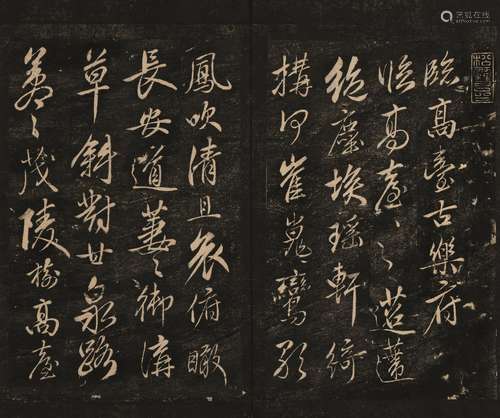 臨高臺古樂府
臨高臺〻迢遞
絶塵埃瑤軒綺
構何崔嵬鸞歌
鳳吹清且哀俯瞰
長安道萋〻御溝
草斜對甘泉路
蒼〻茂陵樹高臺